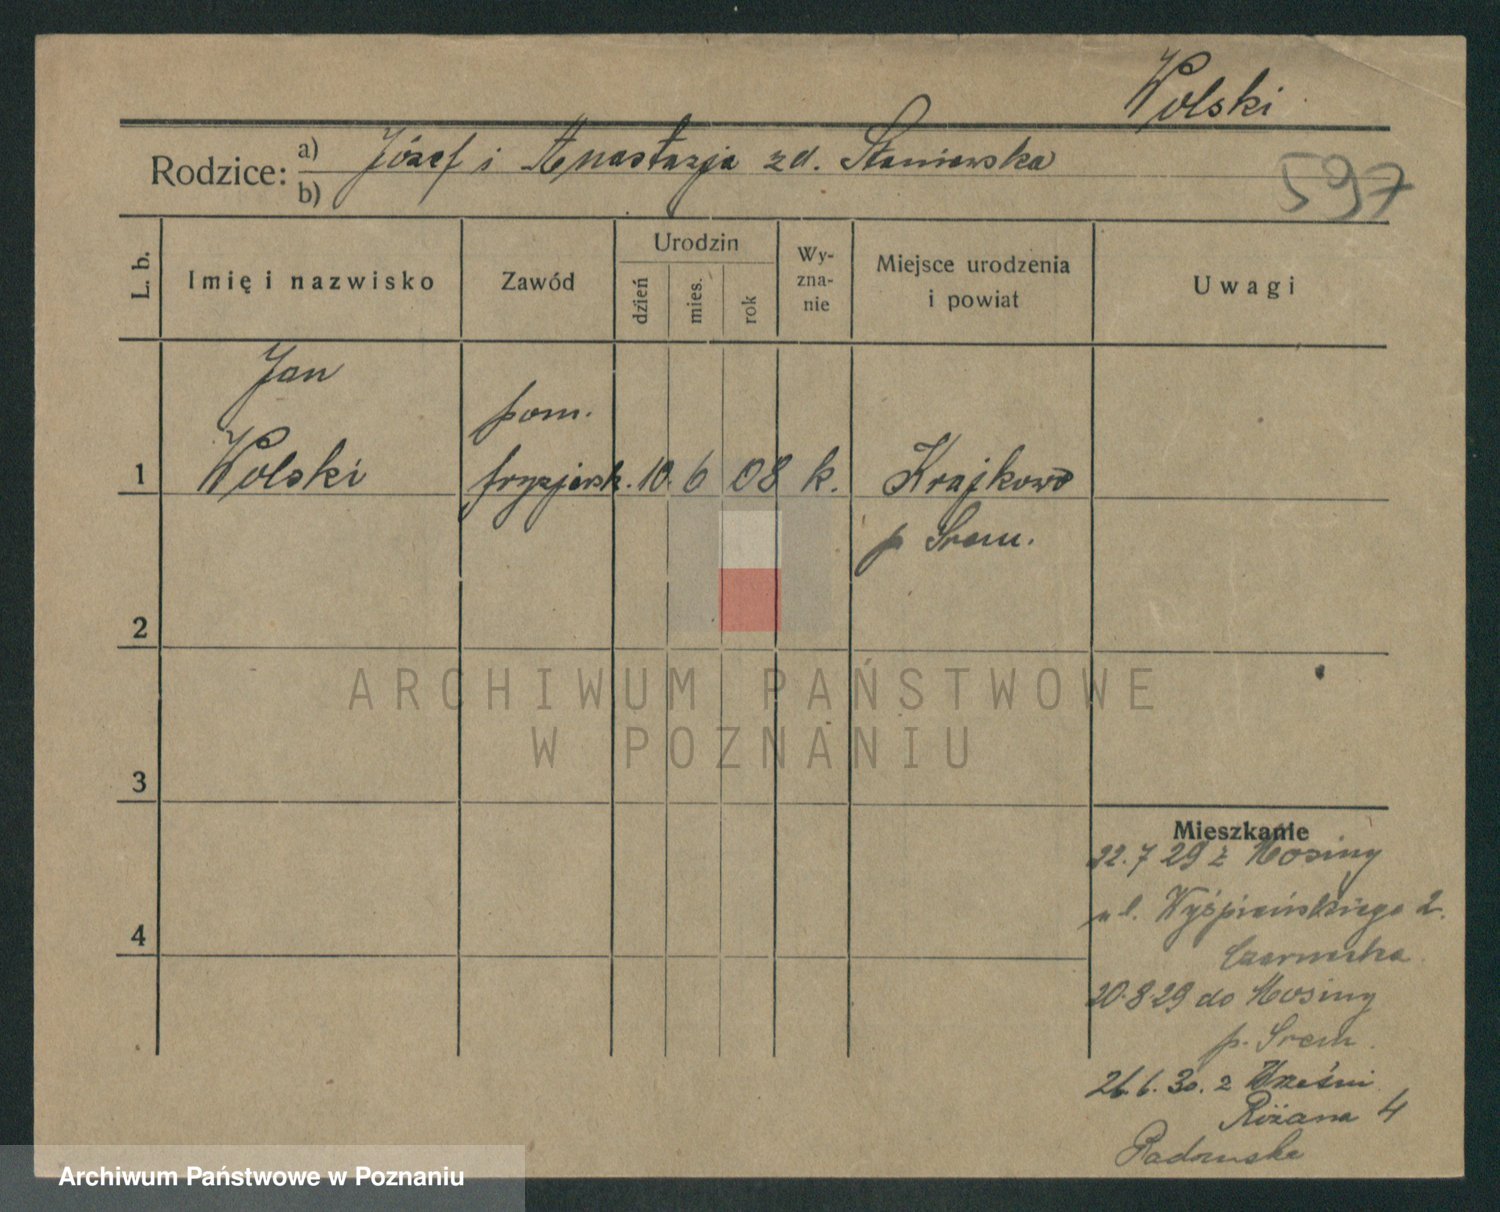 Wolski
Rodzice: a) Józef i Anastazja zd. Staniewska
b)
597
L. b.
Imię i nazwisko
Zawód
Urodzin
dzień
mies.
rok
Wy-
zna-
nie
Miejsce urodzenia
i powiat
Uwagi
Jan
Wolski
pom.
fryzjersk.
1
10. 6 08
k.
Krajkowo
p Śrem.
2
3
4
Mieszkanie
22.7 29 z Mosiny
ul. Wyśpiańskiego 2.
Czarnecka
20.8.29 do Mosiny
p. Śrem.
26.6.30. z Wrześni
Różana 4
ARCHIWUM PAŃSTWOWE
W POZNANIU
Archiwum Państwowe w Poznaniu